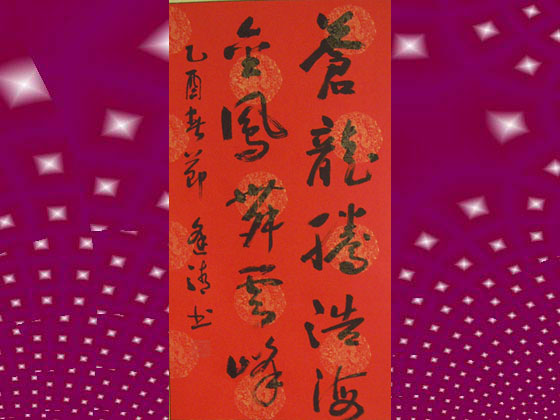 蒼龍騰浩海
金鳳舞雲峰
乙酉春節 逢清书